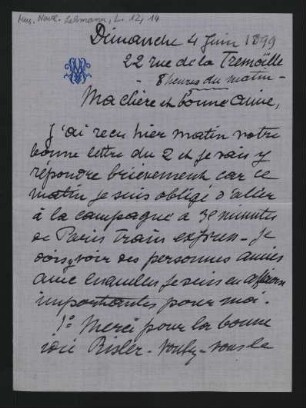 Dimanche 4 Juin 1899
22 rue de la Tremoïlle
8 heures du matin -
Ma chère et bonne amie,
J'ai reçu hier matin votre
bonne lettre du 2 et je vais y
répondre brièvement car ce
matin je suis obligé d'aller
à la campagne à 35 minutes
de Paris train express - Je
dois voir des personnes amies
avec lesquelles je suis en affaires
importantes pour moi.
1° Merci pour la bonne
Risler - Voulez-vous le